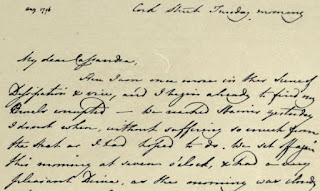 Aug. 1796
Cork Street Tuesday morning
My dear Cassandra,
Here I am once more in this Scene of
Dissipation & vice, and I begin already to find my
Morals corrupted — We reached Staines yesterday
I do not know when, without suffering so much from
the Heat as I had hoped to do. We set off again
this morning at seven o'clock, & had a very
pleasant Drive, as the morning was cloudy